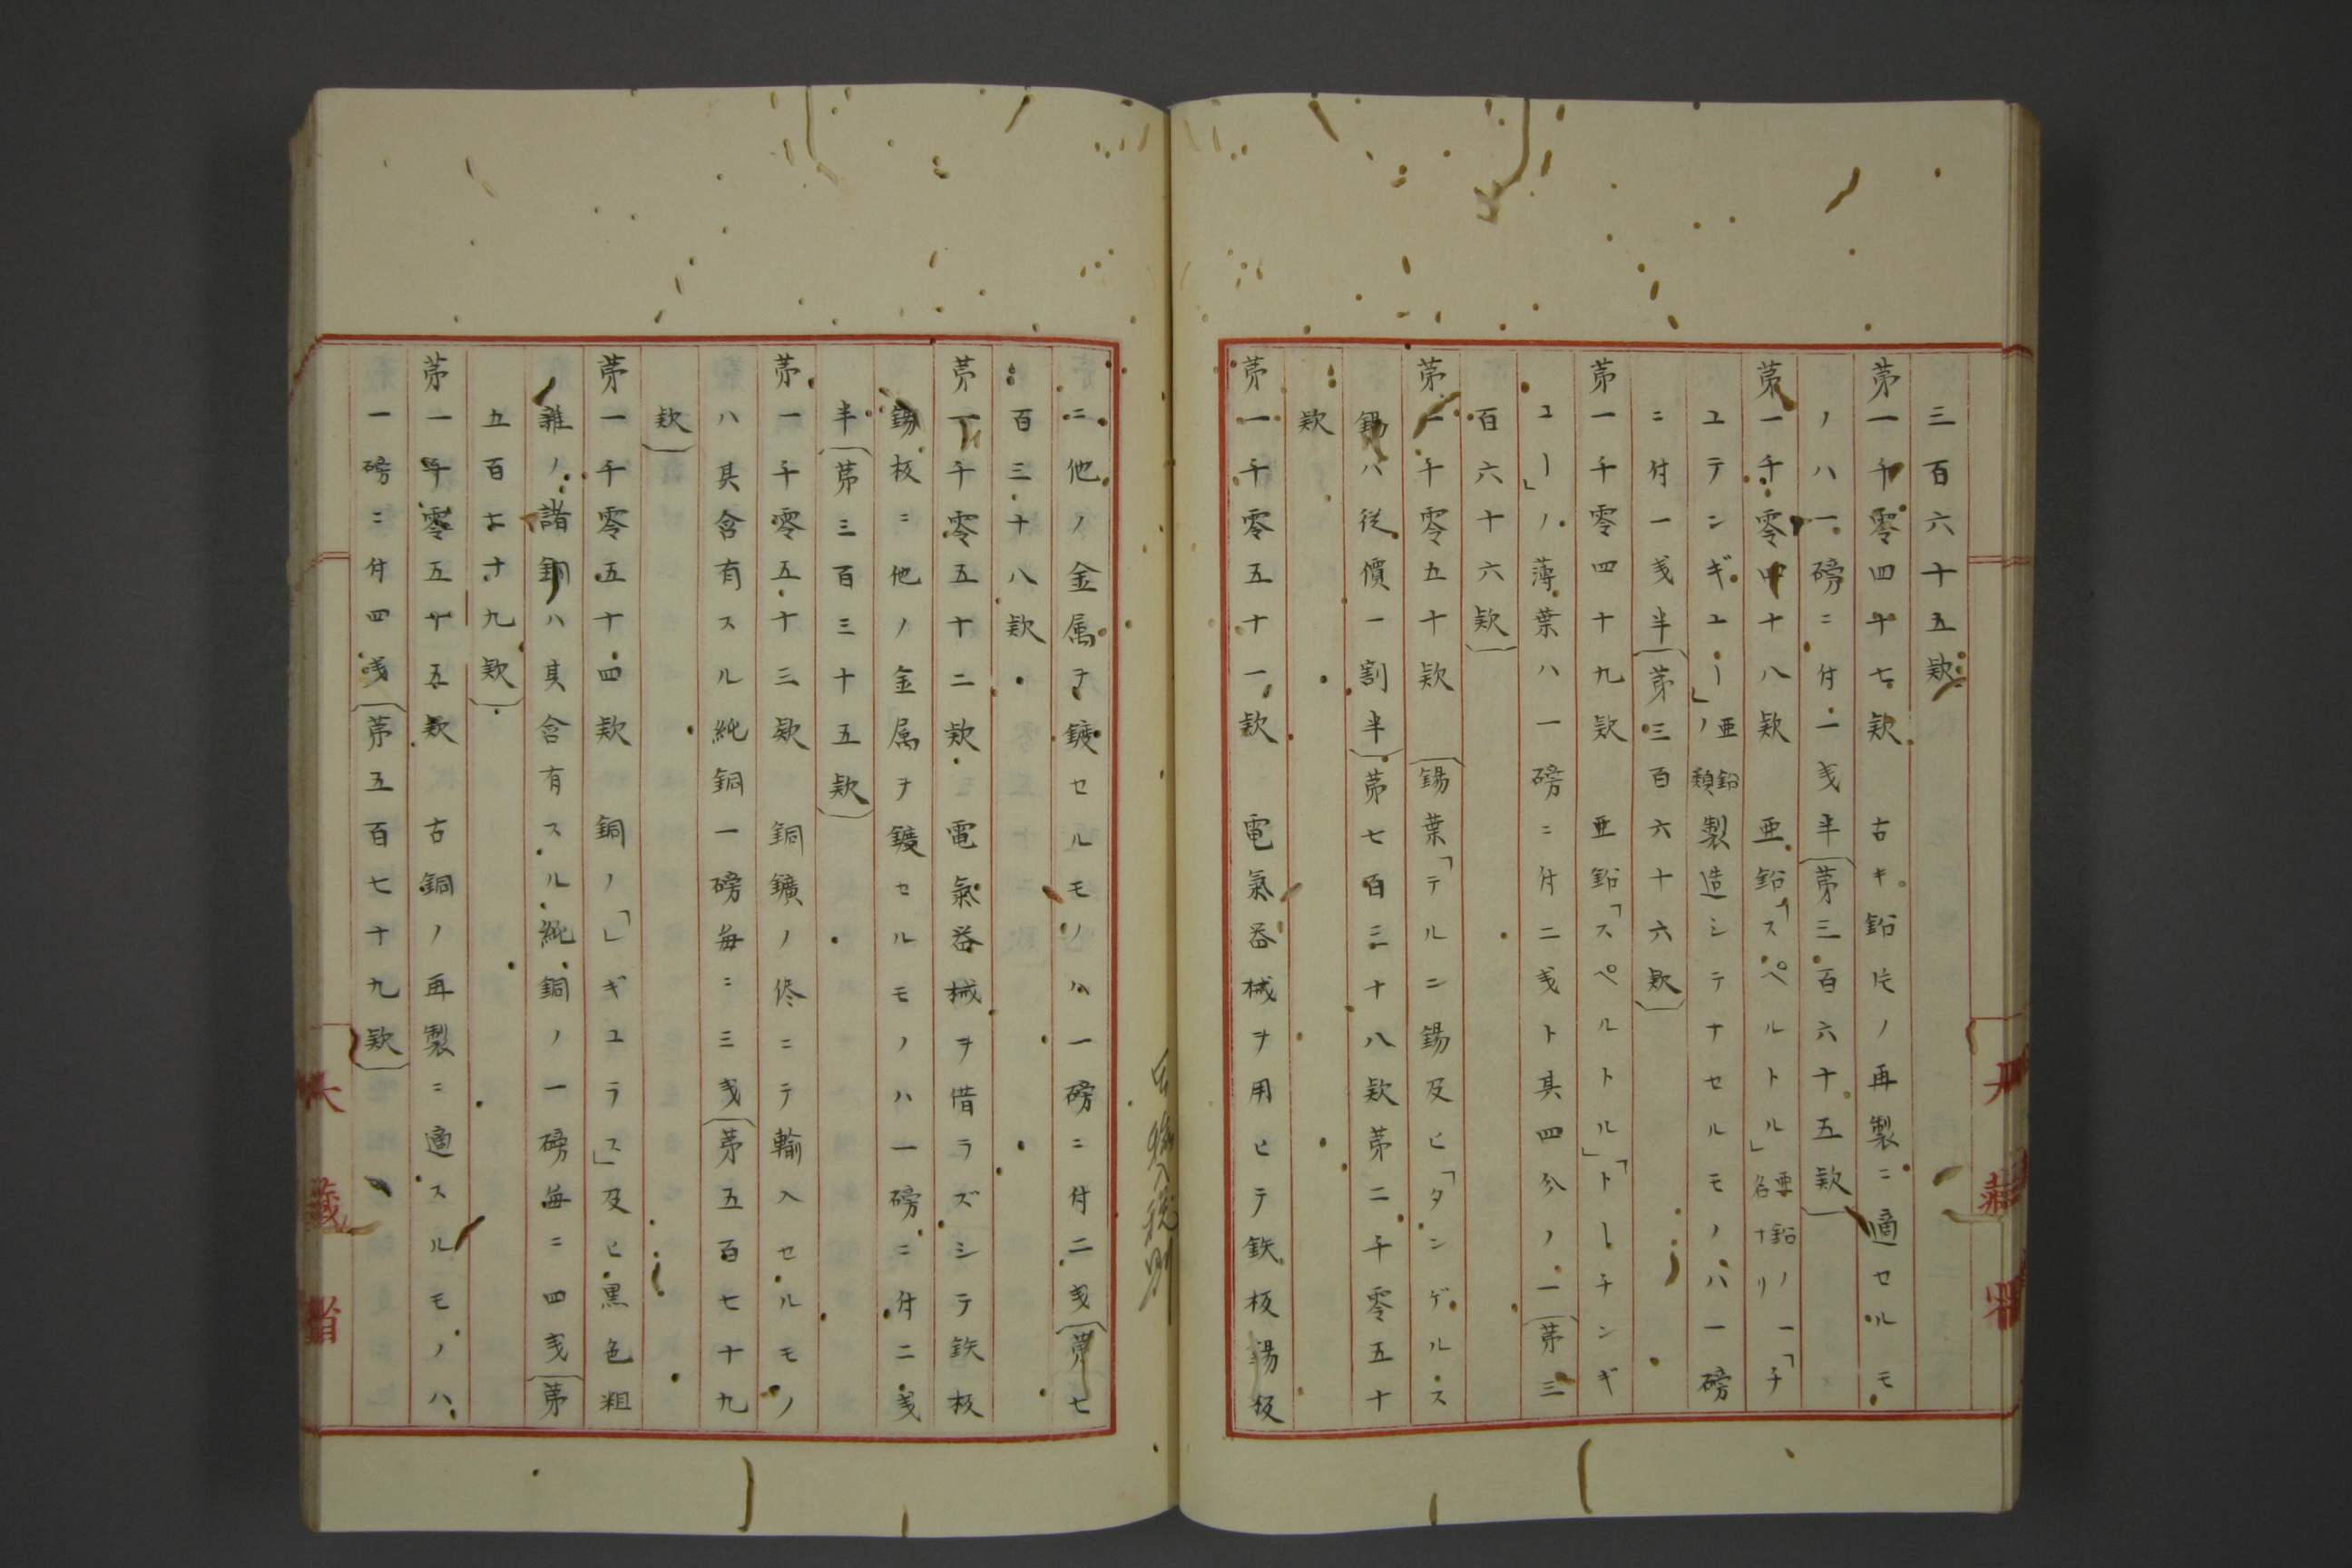 三百六十五款
第一千零四十七款　古キ鉛片ノ再製ニ適セルモ
ノハ一磅ニ付一戔半（第三百六十五款）
第一千零四十八款　亜鉛「スペルトル」亜鉛ノ一名ナリ「チ
ユテンギユー」ノ亜鉛類製造シテナセルモノハ一磅
ニ付一戔半（第三百六十六款）
第一千零四十九款　亜鉛「スペルトル」「トーチンギ
ユー」ノ薄葉ハ一磅ニ付二戔ト其四分ノ一（第三
百六十六款）
第一千零五十款　（錫葉「テルニ錫及ヒ「タンゲルス
錫ハ従價一割半）第七百三十八款第二千零五十
款
第一千零五十一款　電氣器械ヲ用ヒテ鉄板錫板
ニ他ノ金属ヲ鍍セルモノハ一磅ニ付二戔（第七
百三十八款
第一千零五十二款　電氣器械ヲ借ラズシテ鉄板
錫板ニ他ノ金属ヲ鍍セルモノハ一磅ニ付二戔
半（第三百三十五款）
第一千零五十三款　銅鑛ノ侭ニテ輸入セルモノ
ハ其含有スル純銅一磅毎ニ三戔（第五百七十九
款）
第一千零五十四款　銅ノ「レギユラス」及ヒ黒色粗
雜ノ諸銅ハ其含有スル純銅ノ一磅毎ニ四戔（第
五百七十九款）
第一千零五十五款　古銅ノ再製ニ適スルモノハ
一磅ニ付四戔（第五百七十九款）
大藏省